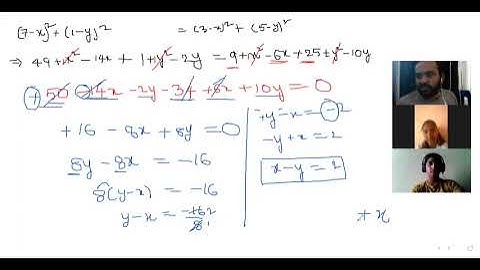 (7-x)²+(1-y)² = (3-x)²+(5-y)²
⇒ 49+x²-14x + 1+y²-2y = 9+x²-6x+25+y²-10y
+50-14x-2y-34+6x+10y=0
+16-8x+8y=0
8y-8x=-16
8(y-x)=-16
y-x=-16 2/8 1
+y-x=-2
-y+x=2
x-y=2
+x